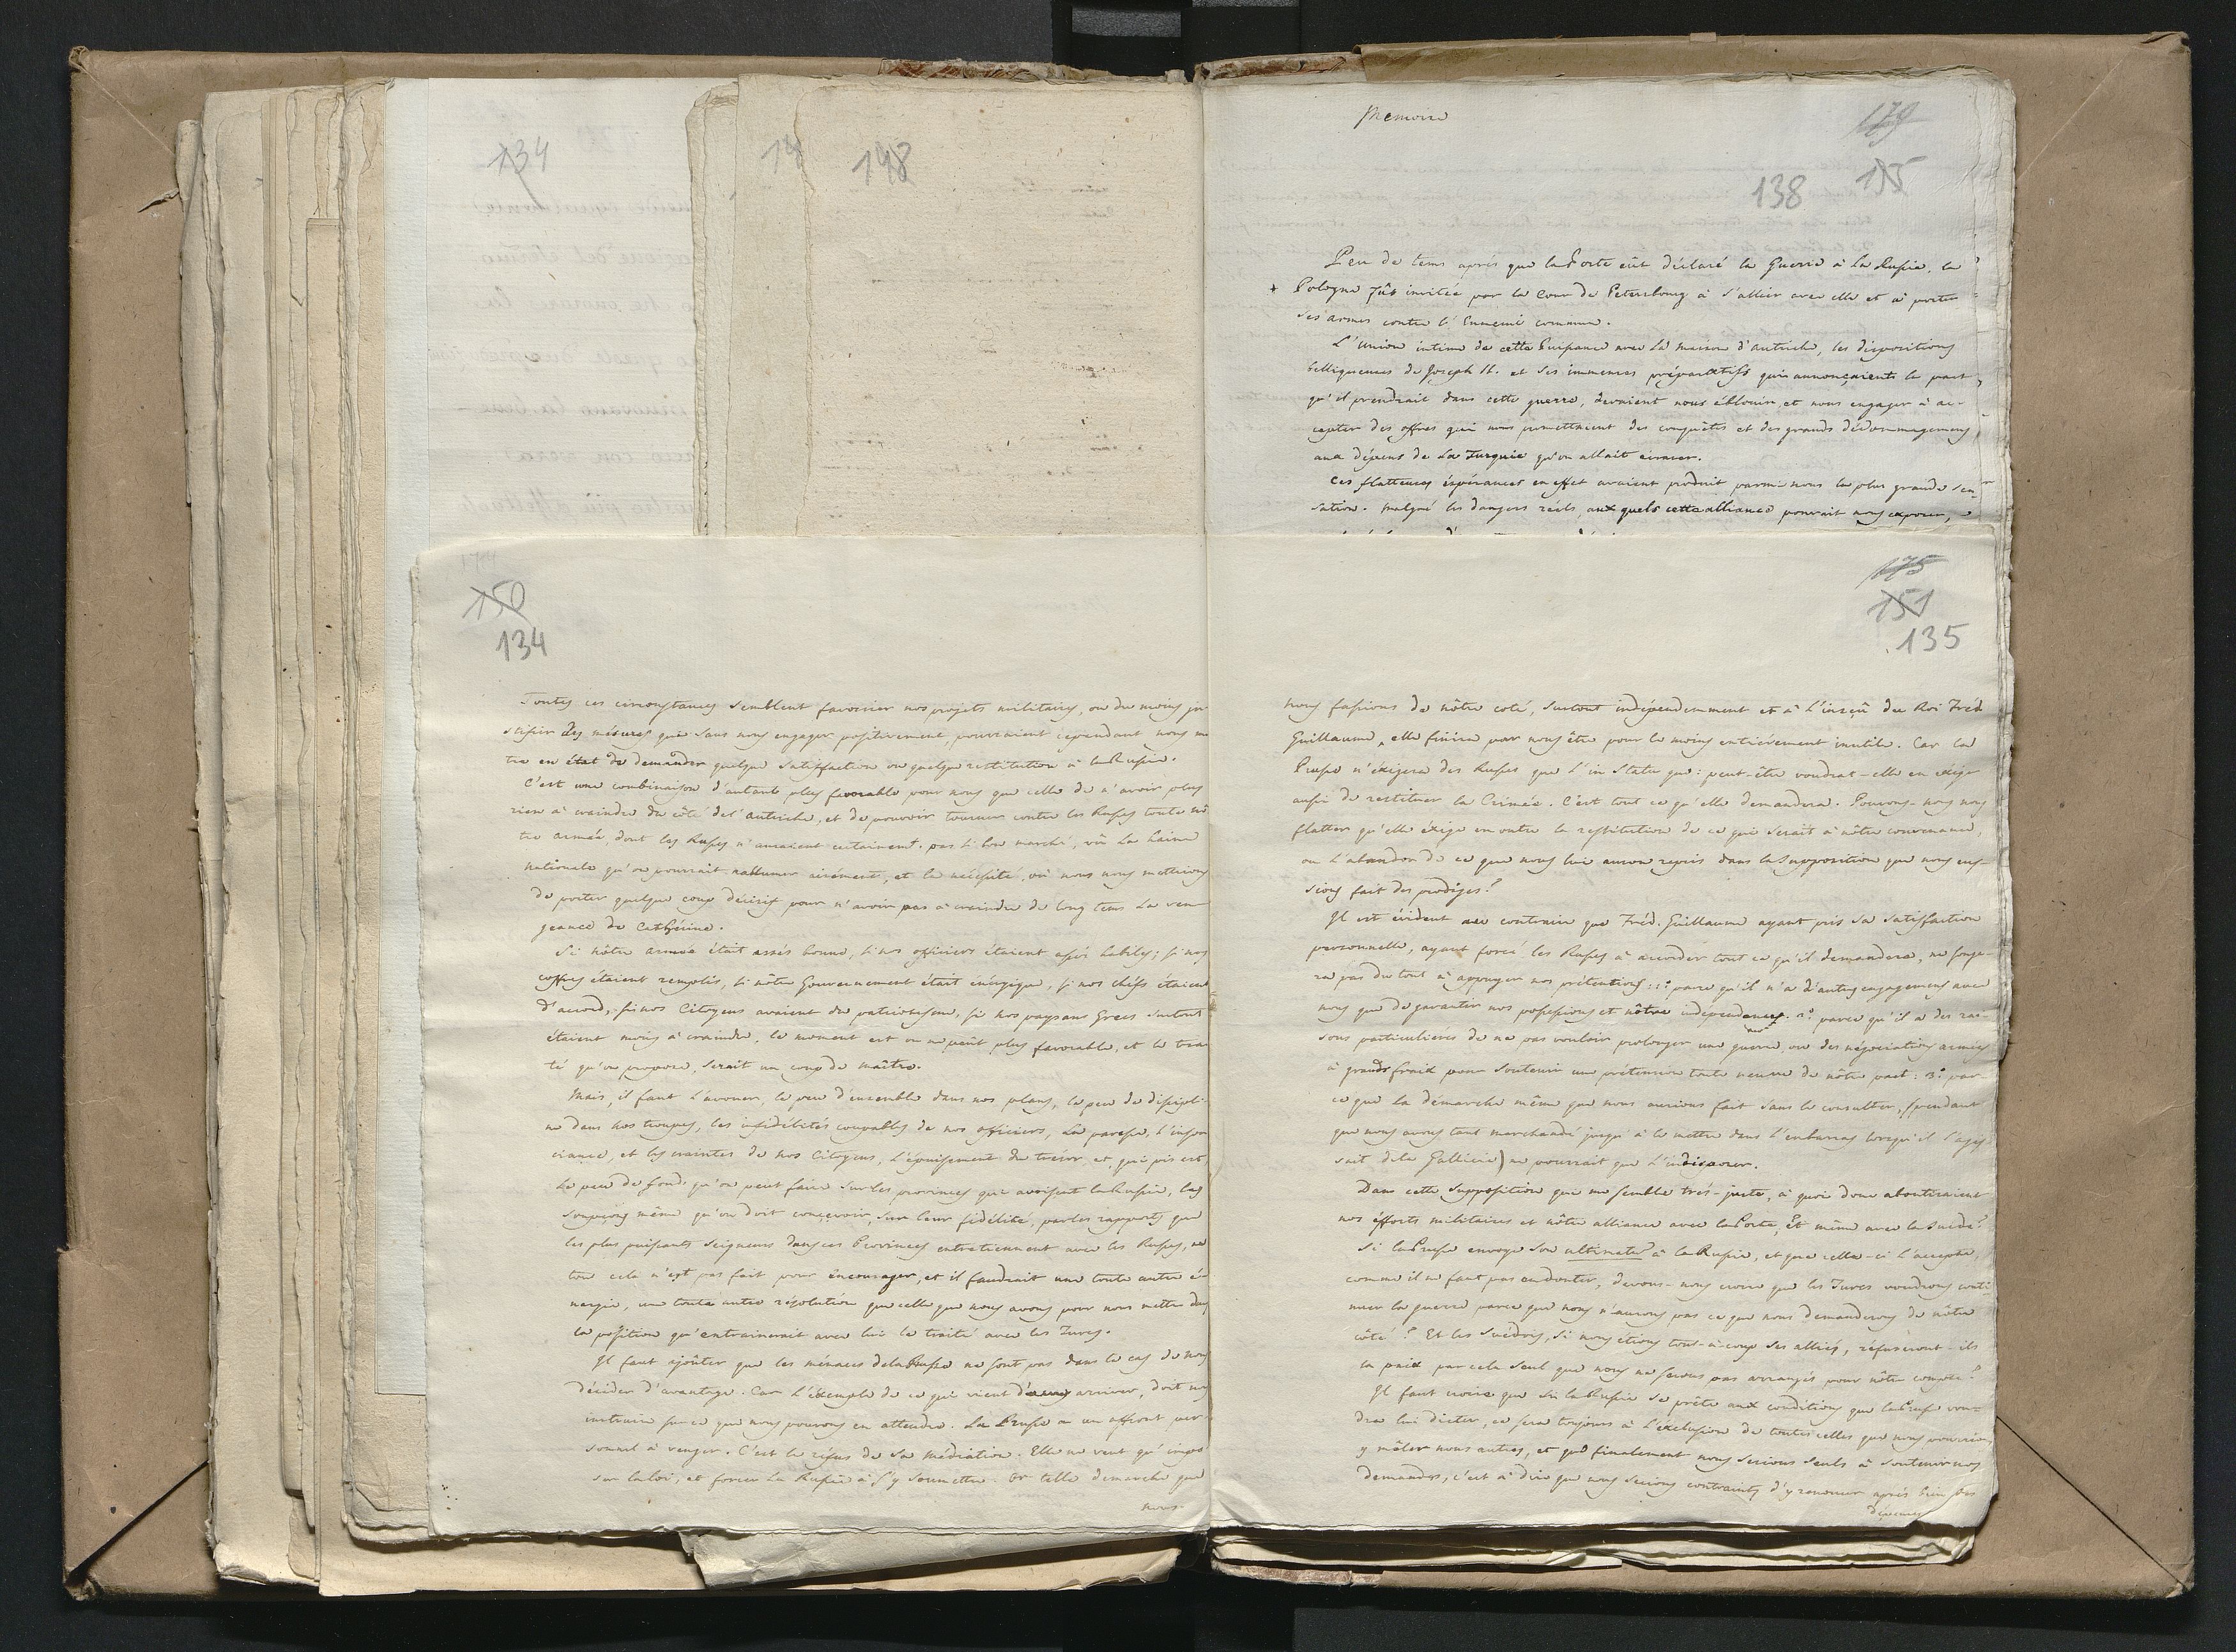 134
14
148
Memoire
179
138 155
Peu de tems après que la Porte eût déclaré la Guerre à la Russie, la
Pologne fût invitée par la Cour de Petersbourg à s'allier avec elle et à porter
ses armes contre l'Ennemi commun.
L'union intime de cette Puissance avec la maison d'autriche, les dispositions
belliqueuses de Joseph II. et ses immenses préparatifs qui annonçaient la part
qu'il prendrait dans cette guerre, devaient nous éblouir, et nous engager à ac-
cepter des offres qui nous promettaient des conquêtes et des grands dédommagemens
aux dépens de la Turquie qu'on allait écraser.
Ces flatteuses éspérances en effet avaient produit parmi nous la plus grande sen-
sation. malgré les dangers réels, aux quels cette alliance pouvait nous exposer,
174
150
134
Toutes ces circonstances semblent favoriser nos projets militaires, ou du moins ju
stifier des mésures qui sans nous engager positivement, pourraient cependant nous m
tre en état de demander quelque satisfaction ou quelque restitution à la Russie.
C'est une combinaison d'autant plus favorable pour nous que celle de n'avoir plus
rien à craindre du côté de l'autriche, et de pouvoir tourner contre les Russes toute nô
tre armée, dont les Russes n'auraient certainemt. pas si bon marché, vû la haine
nationale qu'on pourrait rallumer aisément, et la nécessité, où nous nous mettrions
de porter quelque coup décisif pour n'avoir pas à craindre de long tems la ven-
geance de Cathérine.
Si nôtre armée était assés bonne, si nos officiers étaient assés habiles; si nos
coffres étaient remplis, si nôtre Gouvernement était énérgique, si nos chéfs étaient
d'accord, si nos Citoyens avaient du patriotisme, si nos paysans Grecs surtout
étaient moins à craindre, le moment est on ne peût plus favorable, et le trai
té qu'on propose, serait un coup de maître.
Mais, il faut l'avouer, le peu d'ensemble dans nos plans, le peu de discipli-
ne dans nos troupes, les infidélités coupables de nos officiers, la paresse, l'insou
ciance, et les craintes de nos Citoyens, l'épuisement du trésor et, qui pis est,
le peu de fond. qu'on peut faire sur les provinces qui avoisinent la Russie, les
soupçons même qu'on doit conçevoir sur leur fidélité, par les rapports que
les plus puissants Seigneurs dans ces Provinces entretiennent avec les Russes,
tout cela n'est pas fait pour éncourager, et il faudrait une toute autre é-
nergie, une toute autre résolution que celle que nous avons pour nous mettre dans
la position qu'entrainerait avec lui le traité avec les Turcs.
Il faut ajoûter que les ménaces de la Prusse ne sont pas dans le cas de nous
décider d'avantage. Car l'éxemple de ce qui vient d'arriver, doit nous
instruire sur ce que nous pouvons en attendre. La Prusse a un affront per-
sonnel à venger. C'est le réfus de sa médiation. Elle ne veut qu'impo
ser la loi, et forcer la Russie à s'y soumettre. Or telle demarche que
nous
175
151
135
nous fassions de nôtre coté, surtout indépendemment et à l'insçû du Roi Fréd.
Guillaume, elle finira par nous être pour le moins entièrement inutile. Car la
Prusse n'éxigera des Russes que l'in Statu quo: peut-être voudrat-elle en éxiger
aussi de restituer la Crimée. C'est tout ce qu'elle demandera. Pouvons-nous nous
flatter qu'elle éxige en outre la restitution de ce qui serait à nôtre convenance,
ou l'abandon de ce que nous lui aurons repris dans la supposition que nous eus-
sions fait des prodiges?
Il est évident au contraire que Fréd. Guillaume ayant pris sa satisfaction
personnelle, ayant forcé les Russes à accorder tout ce qu'il demandera, ne songe-
ra pas du tout à appuyer nos prétentions: 1º parce qu'il n'a d'autres engagemens avec
nous que de garantir nos possessions et nôtre indépendence. 2º. parce qu'il a des rai-
sons particulières de ne pas vouloir prolonger une guerre, ou des négociations armées
à grands fraix pour soutenir une prétension toute neuve de nôtre part: 3º. par-
ce que la démarche même que nous aurions fait sans le consulter, (pendant
que nous avons tant marchandé jusqu'à le mettre dans l'embarras lorsqu'il s'agis-
sait de la Gallicie) ne pourrait que l'indisposer.
Dans cette supposition qui me semble très-juste, à quoi donc aboutiraient
nos éfforts militaires et nôtre alliance avec la Porte, et même avec la Suède?
Si la Prusse envoye son ultimatum à la Russie, et que celle-ci l'accepte,
comme il ne faut pas en douter, devons-nous croire que les Turcs voudrons conti-
nuer la guerre parce que nous n'aurons pas ce que nous demanderons de nôtre
côté? Et les Suédois, si nous étions tout-à-coup ses alliés, réfuseront-ils
la paix par cela seul que nous ne serons pas arrangés pour nôtre compte?
Il faut croire que si la Russie se prête aux conditions que la Prusse vou-
dra lui dicter, ce sera toujours à l'éxclusion de toutes celles que nous pourrions
y mêler nous autres, et que finalement nous serions seuls à soutenir nos
demandes, c'est à dire que nous serions contraints d'y renoncer après bien des
dépenses